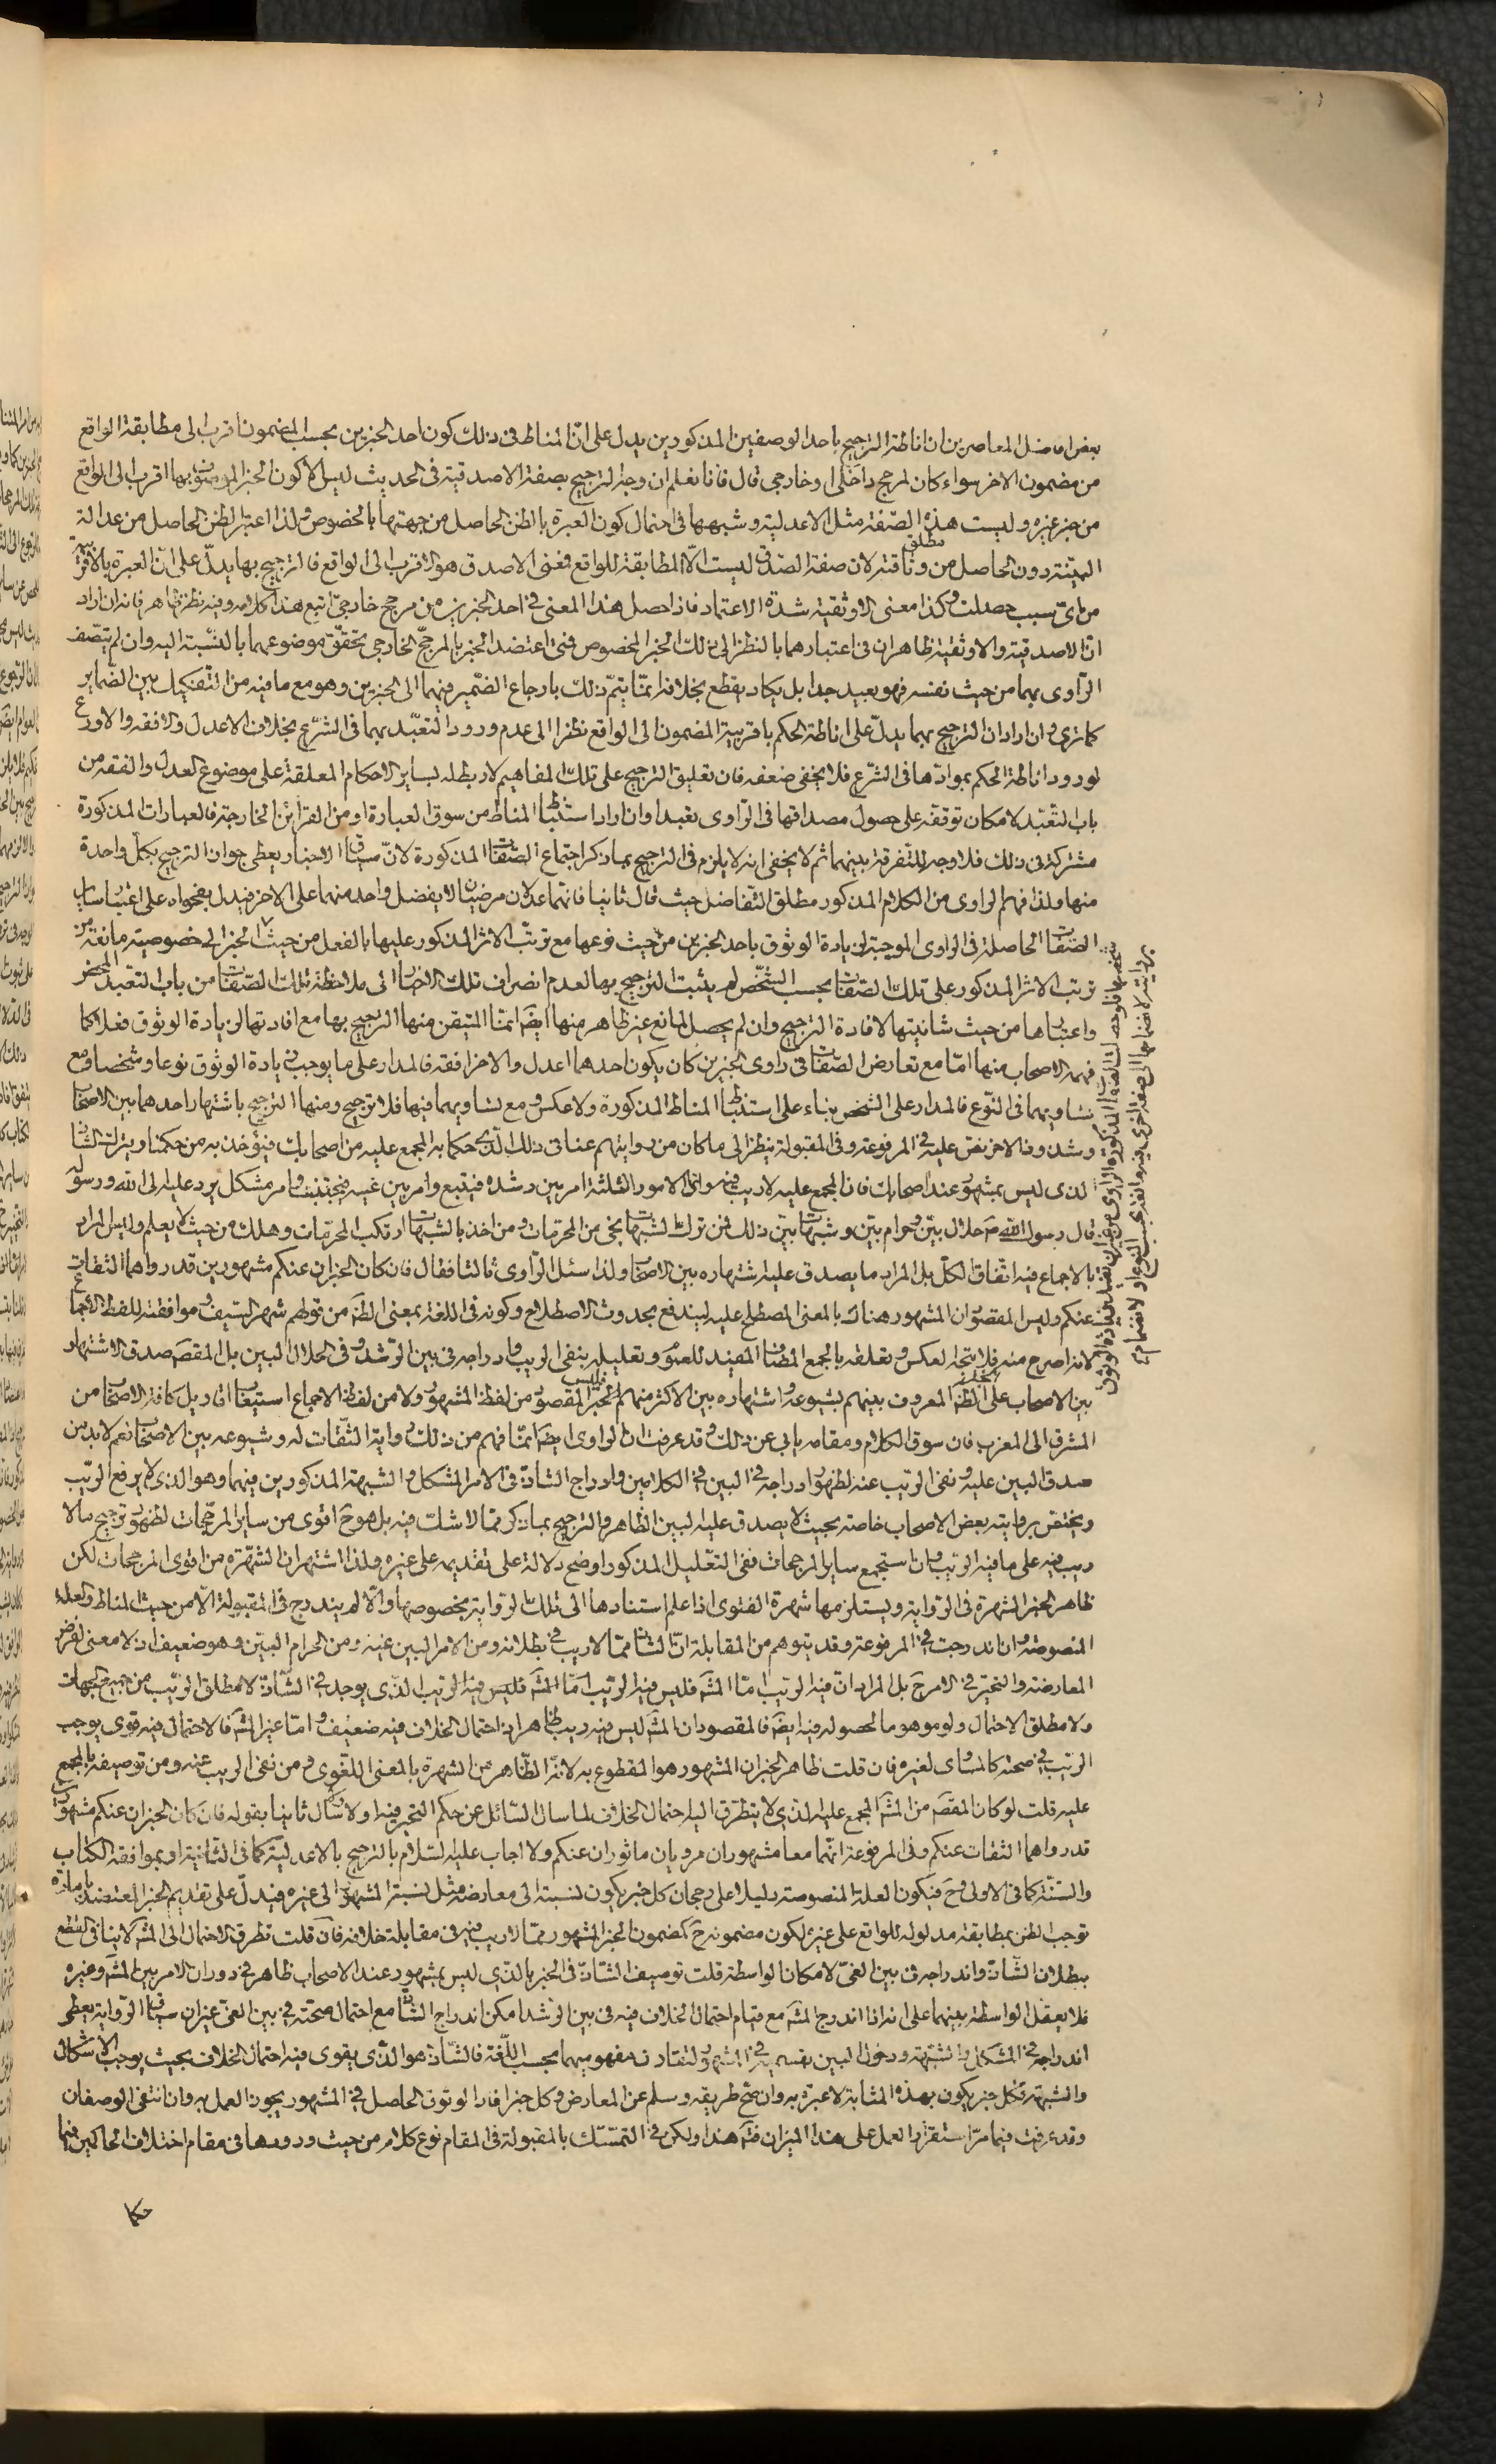 بعض افاضل المعاصرين ان اناطة الترجيح باحد الوصفين المذكورين يدل على انّ المناط فى ذلك كون احد الخبرين بحسب المضمون اقرب الى مطابقة الواقع
من مضمون الاخر سواء كان لمرجح داخلى او خارجى قال فانا نعلم ان وجه الترجيح بصفة الاصدقية فى الحديث ليس الا كون الخبر الموصوف بها اقرب الى الواقع
من خبر غيره وليست هذه الصّفة مثل الاعدلية وشبهها فى احتمال كون العبرة بالظن الحاصل من جهتها بالخصوص ولذا اعتبر الظن الحاصل من عدالة
البيّنة دون الحاصل من مطلق وثاقته لان صفة الصّدق ليست الّا المطابقة للواقع فمعنى الاصدق هو الاقرب الى الواقع فالترجيح بها يدلّ على انّ العبرة بالاقربية
من اىّ سبب حصلت وكذا معنى الاوثقية شدة الاعتماد فاذا حصل هذا المعنى فى احد الخبرين من مرجح خارجىّ اتبع هذا كلامه وفيه نظر ظاهر فانه ان اراد
انّ الاصدقية والاوثقية ظاهران فى اعتبارهما بالنظر الى ذلك الخبر المخصوص فمتى اعتضد الخبر بالمرجّح الخارجى تحقّق موضوعهما بالنّسبة اليه وان لم يتصف
الرّاوى بهما من حيث نفسه فهو بعيد جدا بل يكاد يقطع بخلافه انمّا يتمّ ذلك بارجاع الضّمير فيهما الى الخبرين وهو مع ما فيه من التفكيك بين الضماير
كما ترى وان اراد ان الترجيح بهما يدلّ على اناطة الحكم باقربية المضمون الى الواقع نظرا الى عدم ورود التعبّد بهما فى الشّرع بخلاف الاعدل والافقه والاورع
لورود اناطة الحكم بموادّها فى الشّرع فلا يخفى ضعفه فان تعليق الترجيح على تلك المفاهيم لا ربط له بساير الاحكام المعلقة على موضوع العدل والفقه من
باب التعبّد لامكان توقفه على حصول مصداقها فى الرّاوى تعبدا وان اراد استنباط المناط من سوق العبارة او من القرائن الخارجة فالعبارات المذكورة
مشتركة فى ذلك فلا وجه للتّفرقة بينهما ثم لا يخفى انه لا يلزم فى الترجيح بما ذكر اجتماع الصّفات المذكورة لانّ سياق الاخبار يعطى جواز الترجيح بكل واحدة
منها ولذا فهم الراوى من الكلام المذكور مطلق التّفاضل حيث قال ثانيا فانهما عدلان مرضيان لا يفضل واحد منهما على الاخر فيدل بفحواه على اعتبار ساير
الصّفات الحاصلة فى الراوى الموجبة لزيادة الوثوق باحد الخبرين من حيث نوعها مع ترتّب الاثر المذكور عليها بالفعل من حيث الخبر الى خصوصية مانعة من
ترتب الاثر المذكور على تلك الصّفات بحسب الشّخص لم يثبت الترجيح بها لعدم انصراف تلك الاخبار الى ملاحظة تلك الصّفات من باب التعبد المحض
واعتبارها من حيث شانيتها لافادة الترجيح وان لم يحصل لمانع غير ظاهر منها ايضا انمّا المتيقن منها الترجيح بها مع افادتها لزيادة الوثوق فعلا كما
فهمه الاصحاب منها امّا مع تعارض الصّفات فى راوى الخبرين كان يكون احدهما اعدل والاخر افقه فالمدار على ما يوجب زيادة الوثوق نوعا وشخصا ومع
تساويهما فى النّوع فالمدار على الشخص بناء على استنباط المناط المذكورة ولا عكس ومع تساويهما فيها فلا ترجيح ومنها الترجيح باشتهار احدهما بين الاصحاب
وشذوذ الاخر نصّ عليه فى المرفوعة وفى المقبولة ينظر الى ما كان من روايتهم عنا فى ذلك الّذى حكما به المجمع عليه من اصحابك فيؤخذ به من حكمنا ويترك الشاذّ
الذى ليس بمشهور عند اصحابك فان المجمع عليه لا ريب فيه وانما الامور الثلثة امر بين رشده فيتبع وامر بين غيه فيجتنب وامر مشكل يرد علمه الى الله ورسوله
قال رسول الله ص حلال بيّن وحرام بيّن وشبهات بين ذلك فمن ترك الشبهات نجى من المحرمات ومن اخذ بالشبهات ارتكب المحرّمات وهلك من حيث لا يعلم وليس المراد
بالاجماع فيه اتّفاق الكلّ بل المراد ما يصدق عليه اشتهاره بين الاصحاب ولذا سئل الرّاوى ثالثا فقال فان كان الخبران عنكم مشهورين قد رواهما الثقات
عنكم وليس المقصود ان المشهور هناك بالمعنى المصطلح عليه ليندفع بحدوث الاصطلاح وكونه فى اللغة بمعنى الظهور من قولهم شهر السّيف وموافقته للفظ الاجماع
لانه اصرح منه فلا يتجه العكس وتعلقه بالجمع المضاف المفيد للعموم وتعليله بنفى الريب وادراجه فى بين الرّشد وفى الحلال البين بل المقصود صدق الاشتهار
بين الاصحاب على النظر المعروف بينهم بشيوعه واشتهاره بين الاكثر منهم المقصود من لفظ المشهور ولا من لفظ الاجماع استيعاب اقاويل كافة الاصحاب من
المشرق الى المغرب فان سوق الكلام ومقامه يابى عن ذلك وقد عرفت ان الراوى ايضا انمّا فهم من ذلك رواية الثّقات له وشيوعه بين الاصحاب نعم لا بد من
صدق البين عليه ونفى الريب عنه لظهور ادراجه فى البين فى الكلامين وادراج الشاذّ فى الامر المشكل والشبهة المذكورين فيهما وهو الذى لا يرفع الرّيب
ويختص بروايته بعض الاصحاب خاصة بحيث لا يصدق عليه البين الظاهر والترجيح بما ذكر ممّا لا شك فيه بل هو ح اقوى من ساير المرجّحات لظهور ترجيح ما لا
ريب فيه على ما فيه الريب وان استجمع ساير المرجحات ففى التعّليل المذكور اوضح دلالة على تقديمه على غيره ولذا اشتهر ان الشهّرة من اقوى المرجحات لكن
ظاهر الخبر الشهرة فى الرّواية ويستلزمها شهرة الفتوى اذا علم استنادها الى تلك الرّواية بخصوصها والّا لم يندرج فى المقبولة الّا من حيث المناط والعلة
المنصوصة وان اندرجت فى المرفوعة وقد يتوهم من المقابلة انّ الشاذ ممّا لا ريب فى بطلانه ومن الامر البين غيه ومن الحرام البيّن وهو ضعيف اذ لا معنى لفرض
المعارضة والتخيّر فى الامر ح بل المراد انّ فيه الريب امّا المشهور فليس فيه الريب الّذى يوجد فى الشّاذ لا مطلق الريب من جميع الجهات
ولا مطلق الاحتمال ولو موهوما لحصوله فيه ايضا فالمقصود ان المشهور ليس فيه ريب ظاهر اذ احتمال الخلاف فيه ضعيف وامّا غير المشهور فالاحتمال فيه قوى يوجب
الريب فى صحته كالمساوى لغيره فان قلت ظاهر الخبر ان المشهور هو المقطوع به لانّه الظّاهر من الشهرة بالمعنى اللغوى ومن نفى الريب عنه ومن توصيفه بالمجمع
عليه قلت لو كان المقصود من المشهور المجمع عليه الذى لا يتطرّق اليه احتمال الخلاف لما سال السّائل عن حكم التخير فيه اولا وسال ثانيا بقوله فان كان الخبران عنكم مشهورين
قد رواهما الثقات عنكم وفى المرفوعة انّهما معا مشهوران مرويان ماثوران عنكم ولا اجاب عليه السّلام بالترجيح بالاعدلية كما فى الثانية او بموافقة الكتاب
والسّنّة كما فى الاولى وح فيكون العلة المنصوصة دليلا على رجحان كل خبر يكون نسبته الى معارضه مثل نسبة المشهور الى غيره فيدلّ على تقديم الخبر المعتضد بامارة
توجب الظن بمطابقة مدلوله للواقع على غيره لكون مضمونه ح كمضمون الخبر المشهور ممّا لا ريب فيه فى مقابلة خلافه فان قلت تطرق الاحتمال الى المشهور لا ينافى القطع
ببطلان الشّاذ واندراجه فى بين الغىّ لامكان الواسطة قلت توصيف الشّاذّ فى الخبر بالّذى ليس بمشهور عند الاصحاب ظاهر فى دوران الامر بين المشهور وغيره
فلا يعقل الواسطة بينهما على انه اذا اندرج المشهور مع قيام احتمال الخلاف فيه فى بين الرّشد امكن اندراج الشّاذ مع احتمال صحّته فى بين الغى غير ان سياق الرّواية يعطى
اندراجه فى المشكل والشبهة ودخول البين بقسميه فى المشهور لتقارن مفهوميهما بحسب اللّغة فالشّاذ هو الذّى يقوى فيه احتمال الخلاف بحيث يوجب الاشكال
والشبهة فكل خبر يكون بهذه المثابة لا عبرة به وان صح طريقه وسلم عن المعارض وكل خبر افاد الوثوق الحاصل فى المشهور يجوز العمل به وان انتفى الوصفان
وقد عرفت فيما مرّ استقرار العمل على هذا الميزان فتم هذا ولكن فى التمسّك بالمقبولة فى المقام نوع كلام من حيث ورودها فى مقام اختلاف الحاكمين فيما
حكا